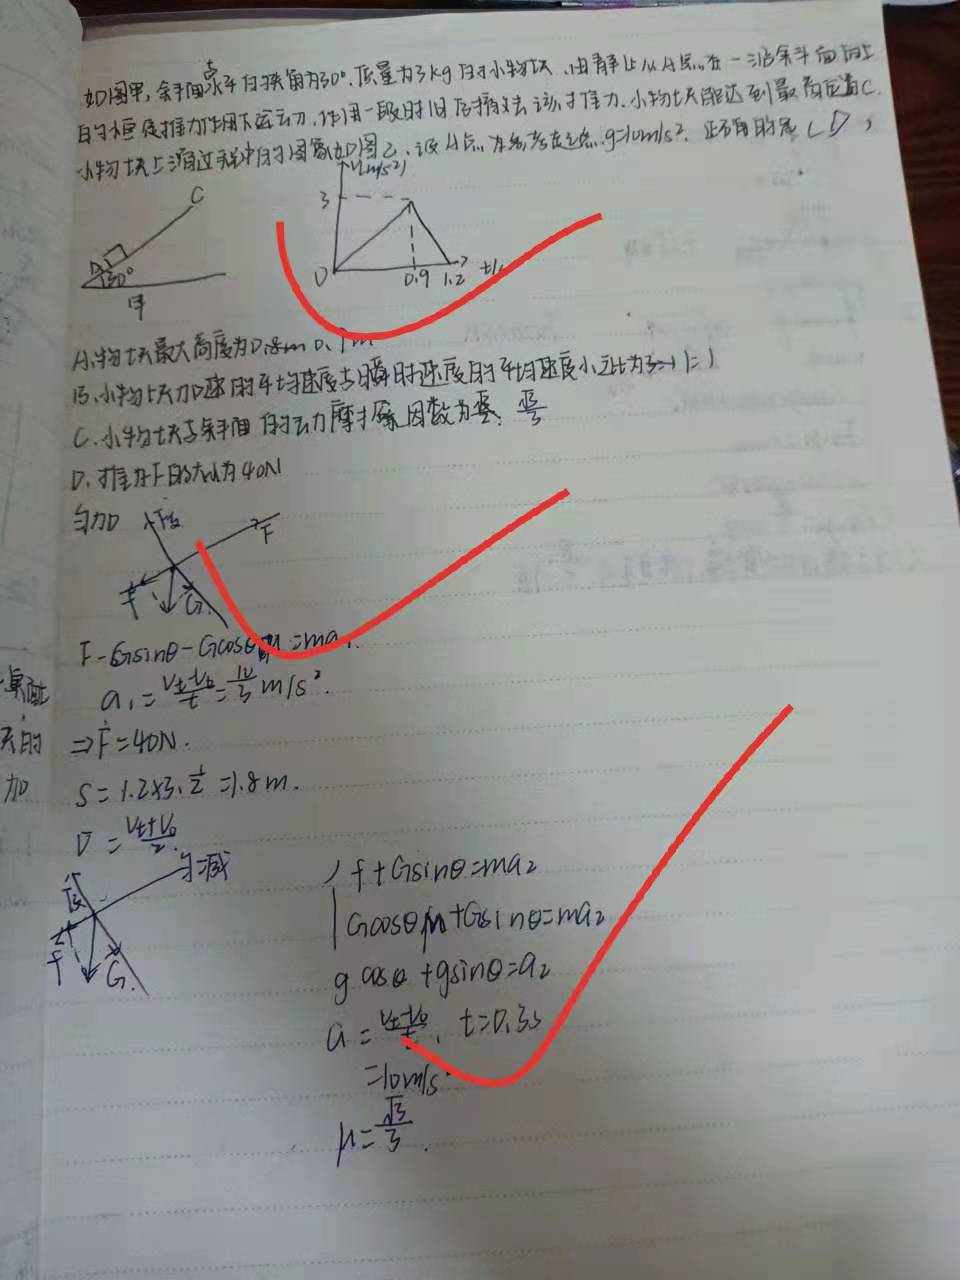 如图甲,斜面与水平的夹角为30°.质量为3kg的小物块,由静止从A点在一沿斜面向上
的恒定推力作用下运动,作用一段时间后撤去该推力.小物块能达到最高位置C.
小物块上滑过程中的图象如图乙,设A点为参考点,g=10m/s².正确的是(D)
C
A 30°
甲
V(m/s²)
3
0 0.9 1.2
A.物块最大高度为0.8m 0.9m
B.小物块加速的平均速度与瞬时速度的平均速度小之比为 1:1
C.小物块与斜面的动力摩擦因数为 √3/3
D.推力F的大小为40N
匀加
F
f G
F-Gsinθ-Gcosθμ=ma₁
a₁=(Vt-V₀)/t=10/3 m/s².
⇒F=40N.
S=1.2×3.1/2=1.8m.
V̄=(Vt+V₀)/2.
匀减
f G.
f+Gsinθ=ma₂
Gcosθμ+Gsinθ=ma₂
g cosθ+gsinθ=a₂
a=(Vt-V₀)/t, t=0.3s
=10m/s
μ=√3/3.